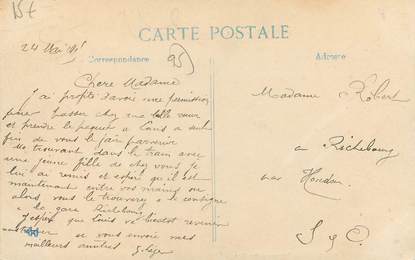 15€
CARTE POSTALE
24 Mai
Correspondance
Adresse
95
Chere Madame
J ai profité d'avoir une permission
pour passer chez ma
et prendre le paquet a Louis a seul
fin de vous le fair parvenir
Me trouvant dans le train avec
une jeune fille de chez vous je
lui ai remis et espoir qu'il est
maintenant entre vos mains ou
alors vous le trouverez a consigne
a la gare Richebourg
J'espoir que Louis va bientot revenir
je vous envoie mes
meilleurs amitiés
Madame Robert
a Richebourg
par Houdan
S & O.